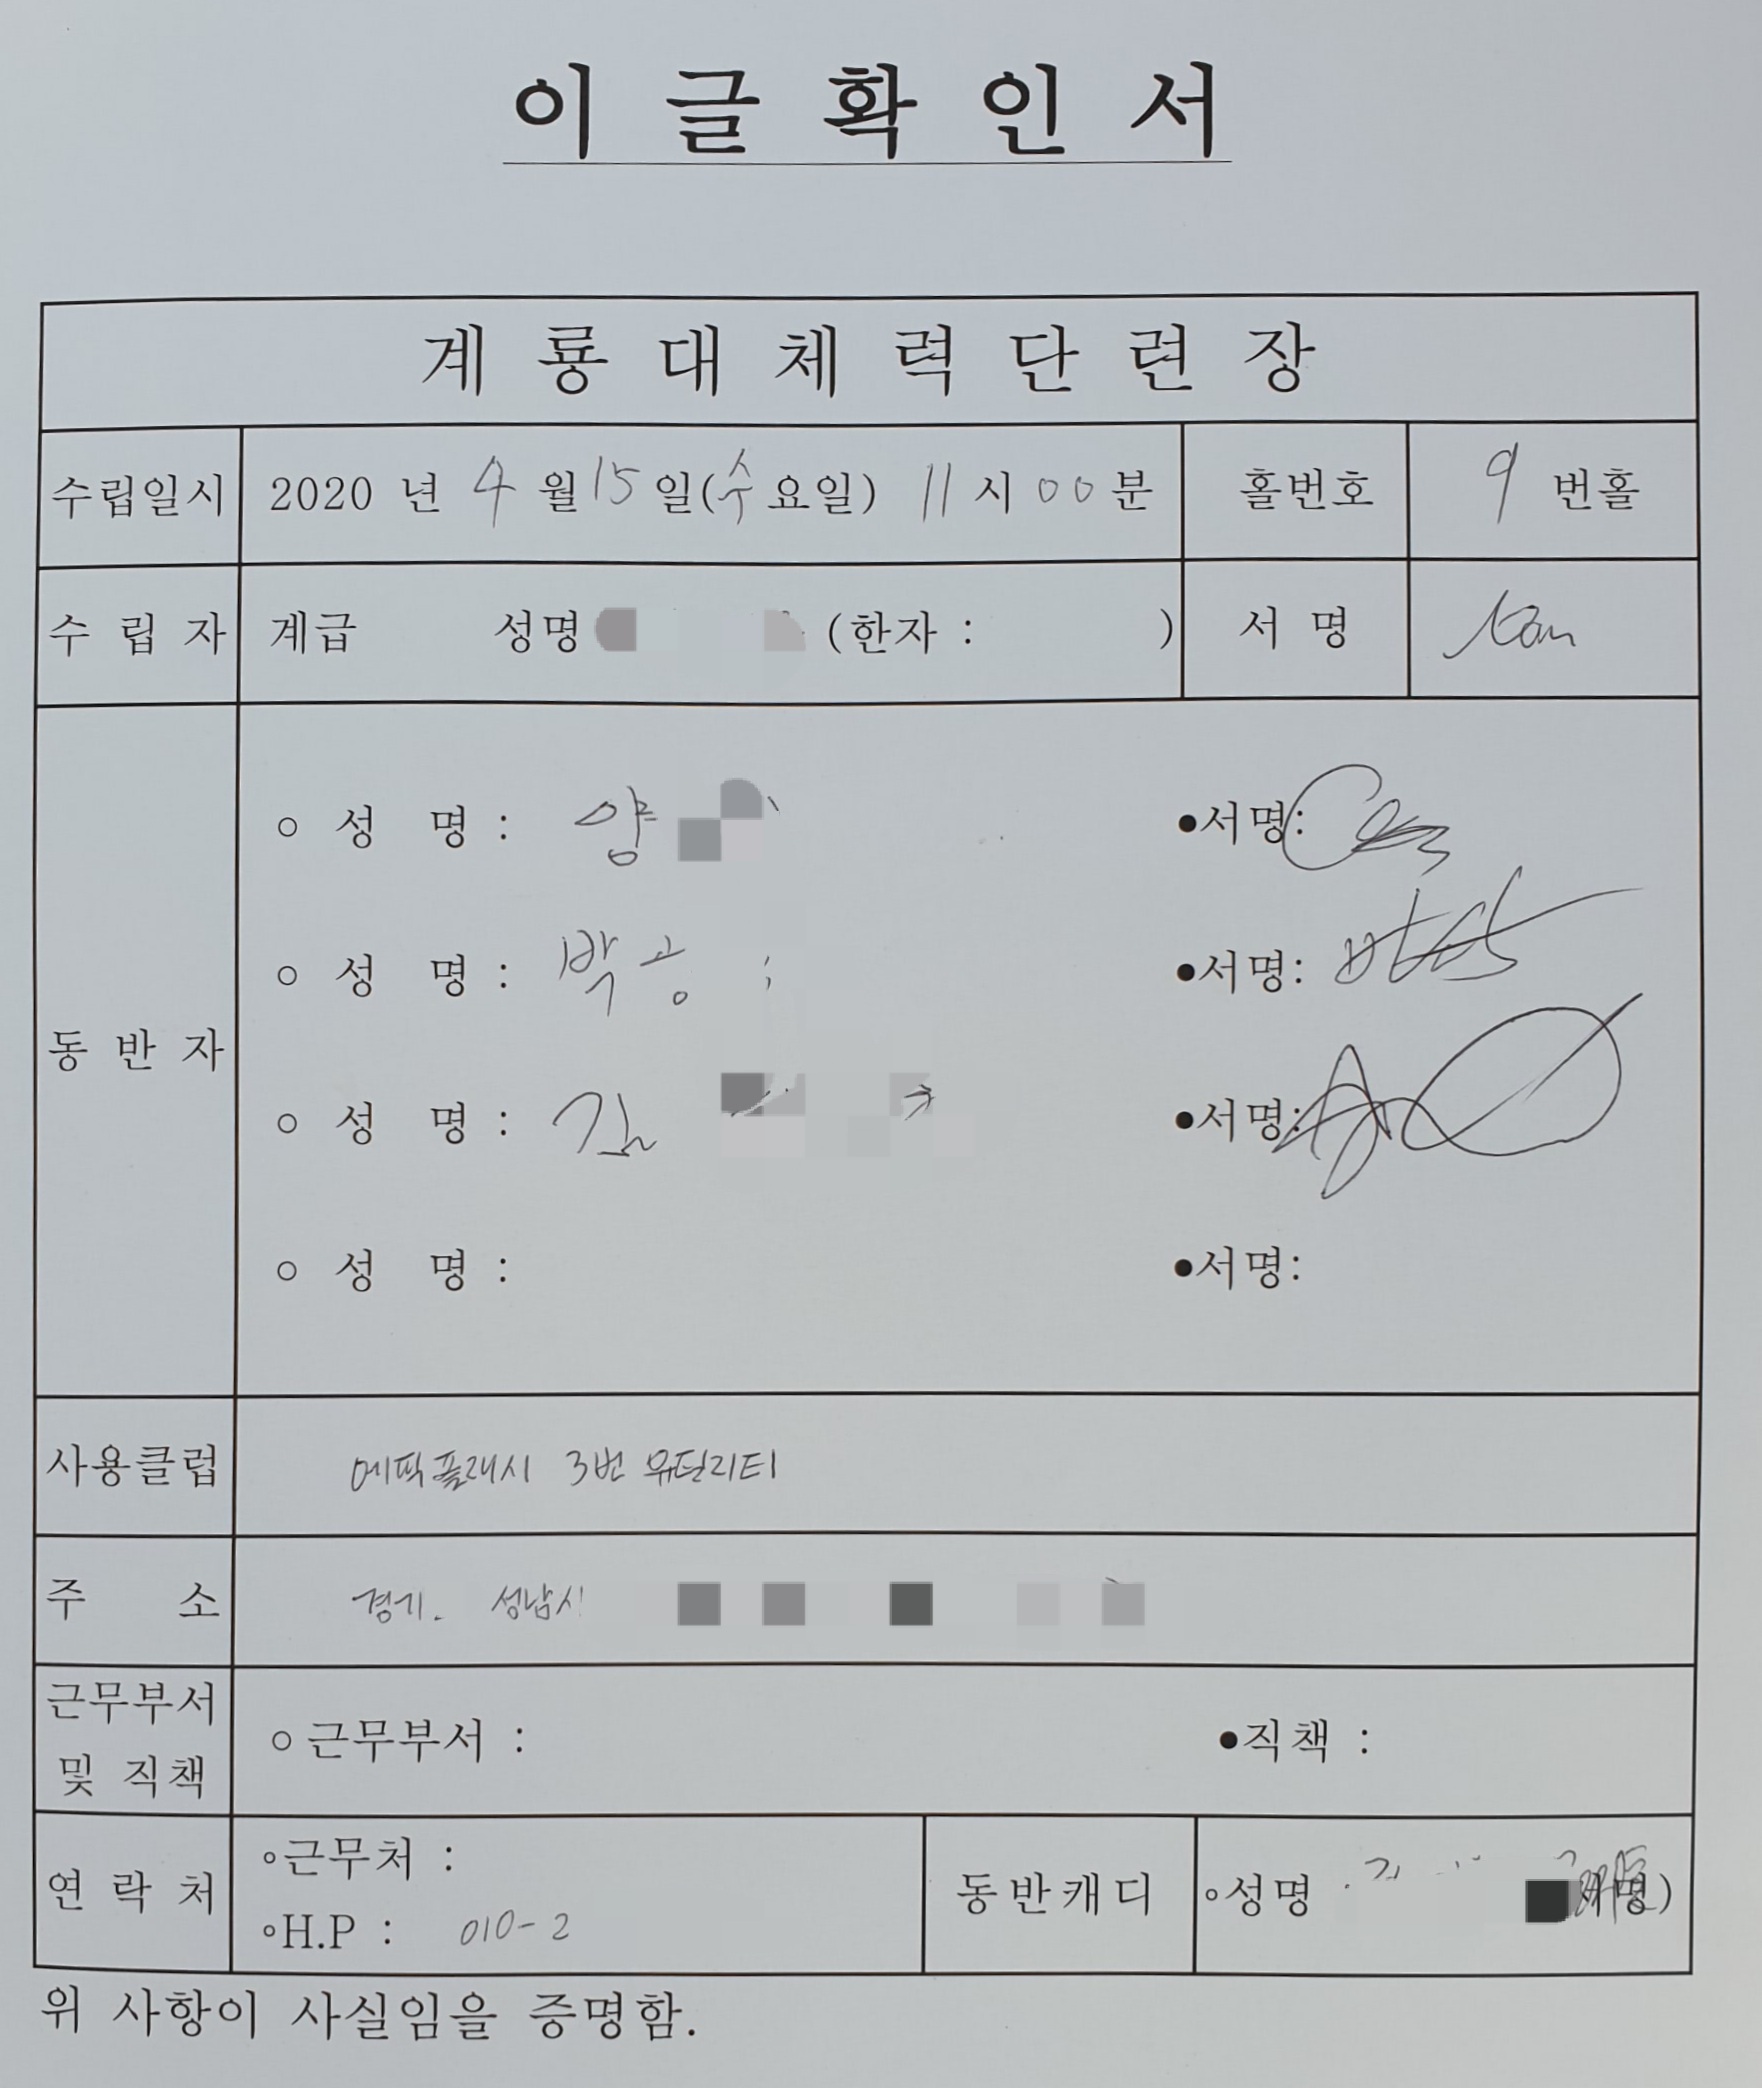 이글확인서
계룡대체력단련장
수립일시 2020 년 4 월 15 일(수요일) 11 시 00 분 홀번호 9 번홀
수 립 자 계급 성명 (한자 : ) 서 명
동 반 자
○ 성 명 : 양 ●서명:
○ 성 명 : 박 ●서명:
○ 성 명 : 김 ●서명:
○ 성 명 : ●서명:
사용클럽 에픽플래시 3번 유틸리티
주 소 경기. 성남시
근무부서 및 직책 ○ 근무부서 : ●직책 :
연 락 처 ○근무처 :
○H.P : 010-2
동반캐디 ○성명 서명)
위 사항이 사실임을 증명함.